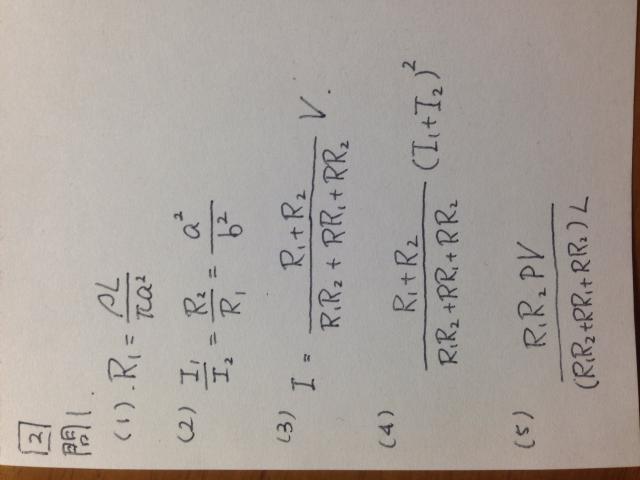 [2]
問1.
(1). R₁ = ρL/πa²
(2) I₁/I₂ = R₂/R₁ = a²/b²
(3) I = (R₁+R₂)/(R₁R₂+RR₁+RR₂) V.
(4) (R₁+R₂)/(R₁R₂+RR₁+RR₂) (I₁+I₂)²
(5) R₁R₂PV/((R₁R₂+RR₁+RR₂)L)